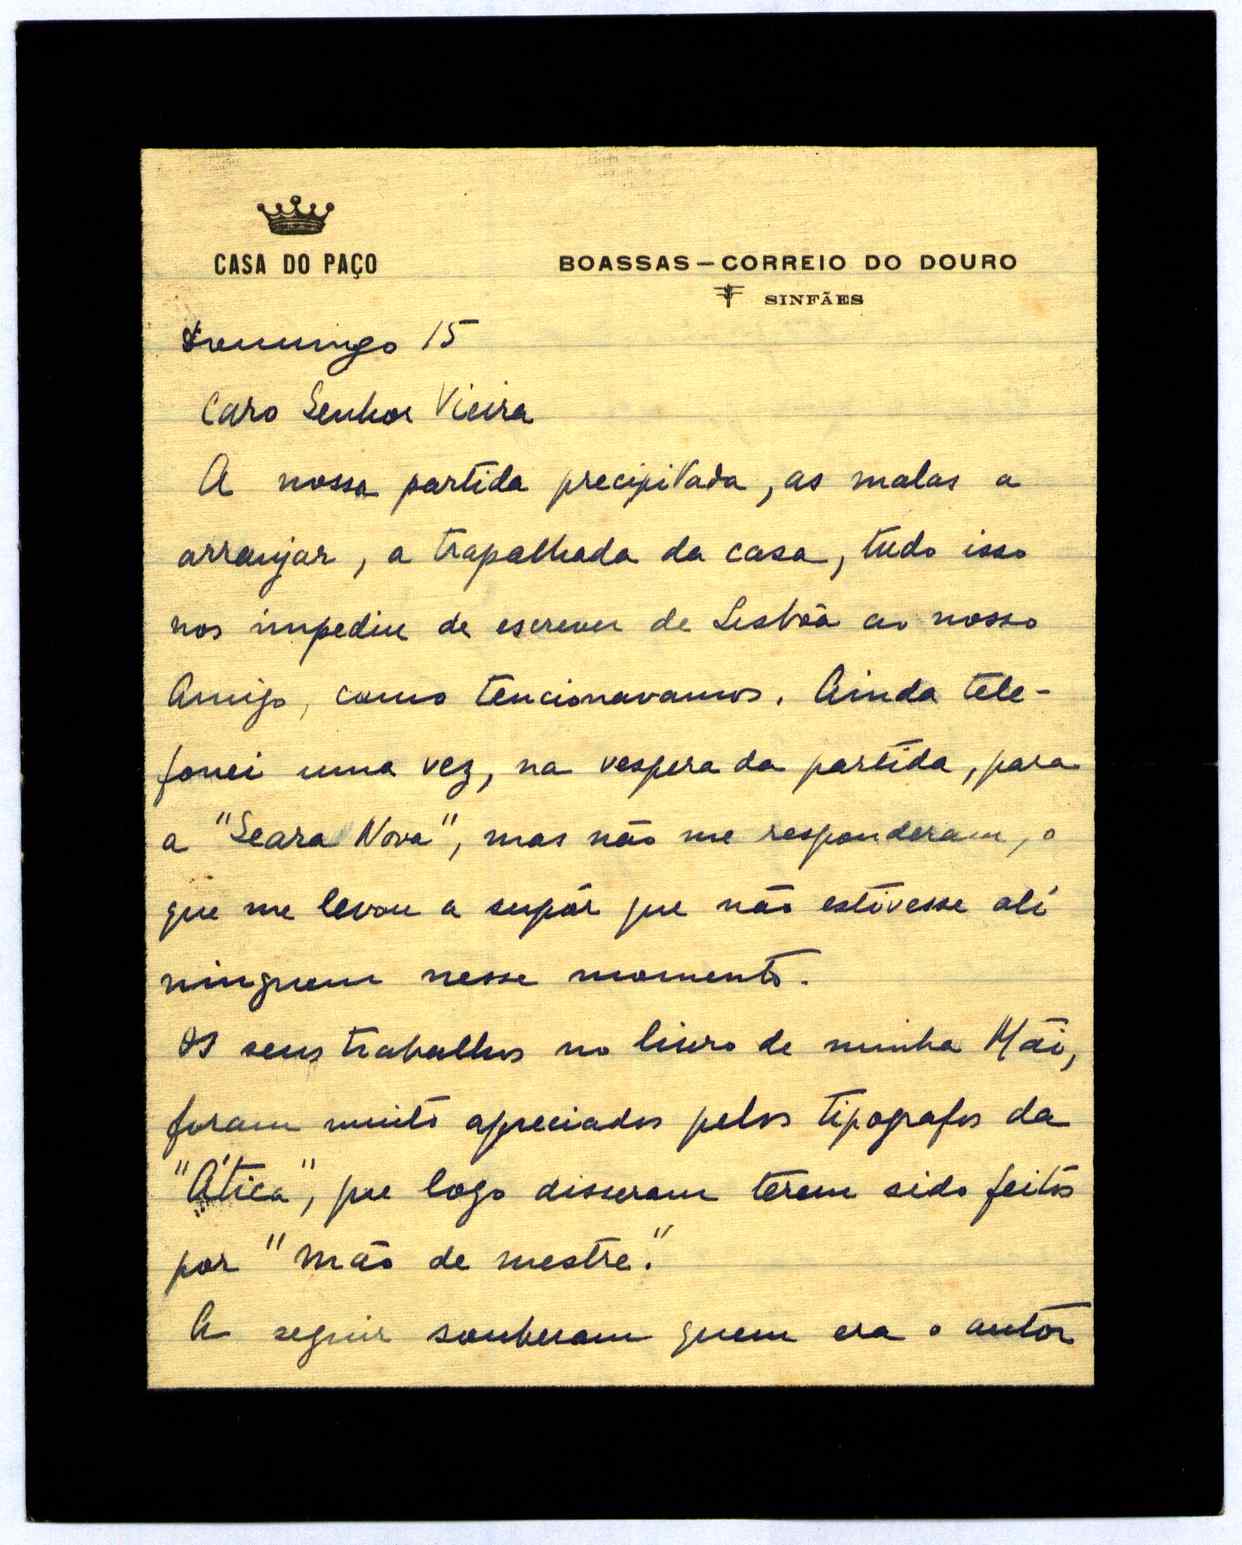 CASA DO PAÇO
BOASSAS – CORREIO DO DOURO
SINFÃES
Domingo 15
Caro Senhor Vieira
A nossa partida precipitada, as malas a
arranjar, a trapalhada da casa, tudo isso
nos impediu de escrever de Lisbôa ao nosso
Amigo, como tencionavamos. Ainda tele-
fonei uma vez, na vespera da partida, para
a "Seara Nova", mas não me responderam, o
que me levou a supôr que não estivesse ali
ninguem nesse momento.
Os seus trabalhos no livro de minha Mãi,
foram muito apreciados pelos tipografos da
"Ática", que logo disseram terem sido feitos
por "mão de mestre."
A seguir souberam quem era o autor